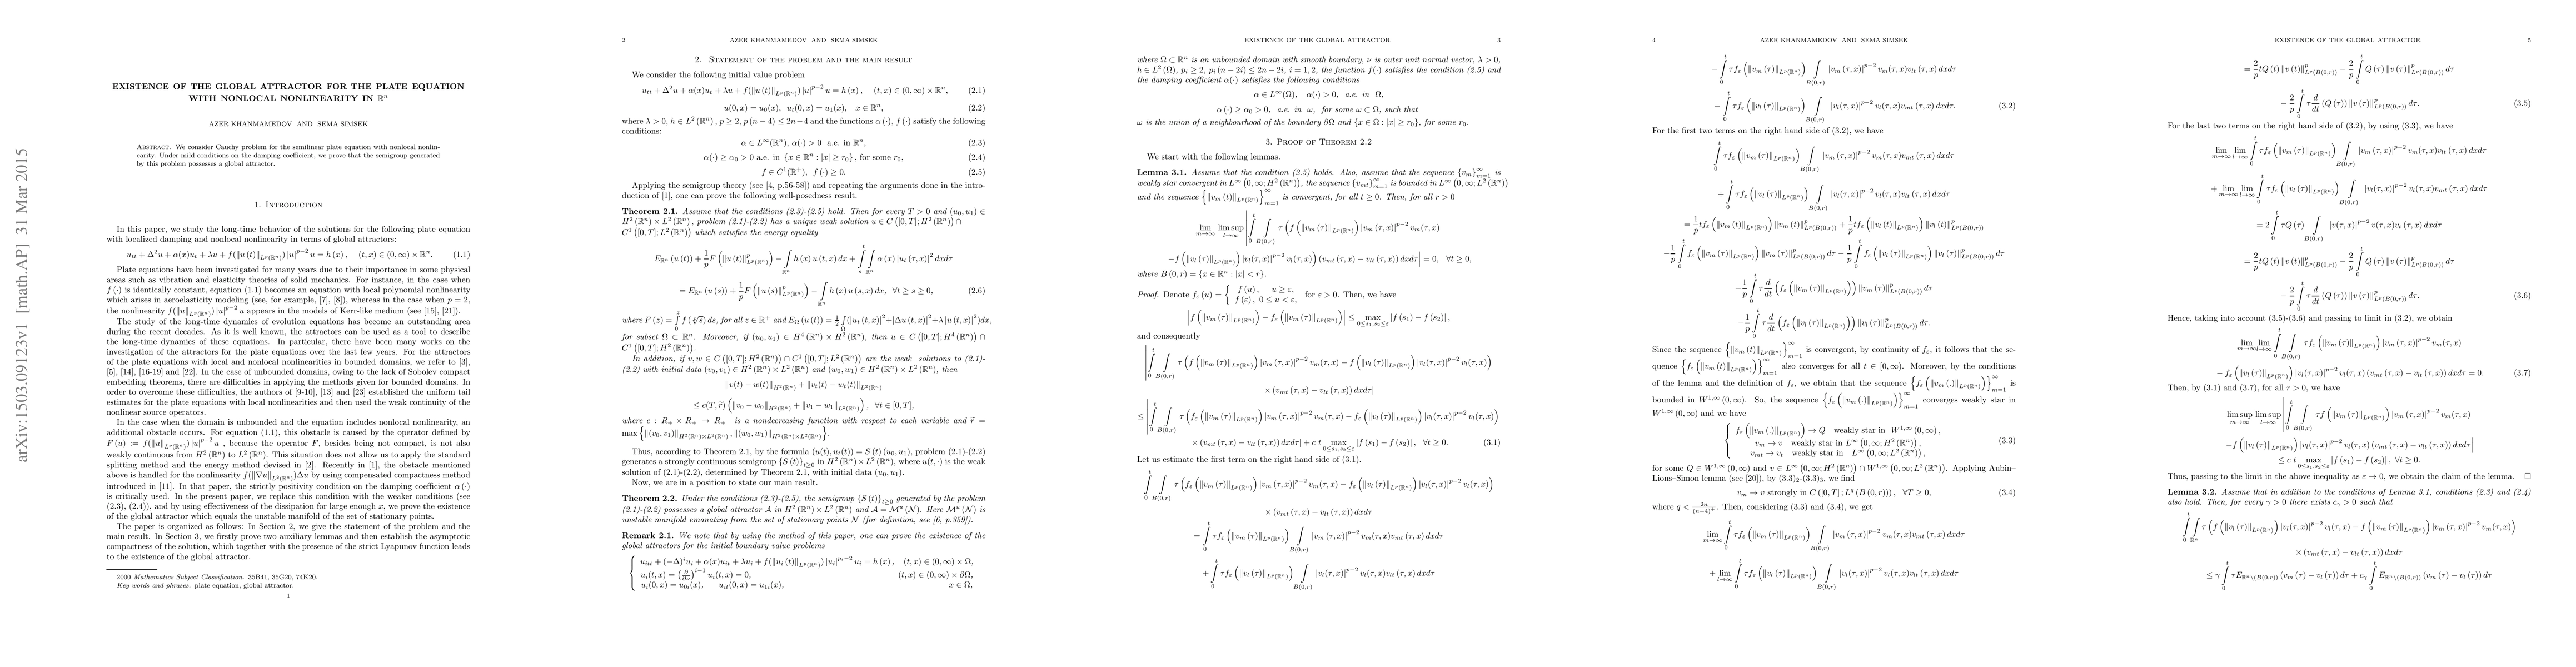 arXiv:1503.09123v1 [math.AP] 31 Mar 2015
EXISTENCE OF THE GLOBAL ATTRACTOR FOR THE PLATE EQUATION
WITH NONLOCAL NONLINEARITY IN ℝⁿ
AZER KHANMAMEDOV AND SEMA SIMSEK
Abstract. We consider Cauchy problem for the semilinear plate equation with nonlocal nonlin-
earity. Under mild conditions on the damping coefficient, we prove that the semigroup generated
by this problem possesses a global attractor.
1. Introduction
In this paper, we study the long-time behavior of the solutions for the following plate equation
with localized damping and nonlocal nonlinearity in terms of global attractors:
u_tt + Δ²u + α(x)u_t + λu + f(‖u(t)‖_{L^p(ℝⁿ)}) |u|^{p−2} u = h(x), (t, x) ∈ (0, ∞) × ℝⁿ. (1.1)
Plate equations have been investigated for many years due to their importance in some physical
areas such as vibration and elasticity theories of solid mechanics. For instance, in the case when
f(·) is identically constant, equation (1.1) becomes an equation with local polynomial nonlinearity
which arises in aeroelasticity modeling (see, for example, [7], [8]), whereas in the case when p = 2,
the nonlinearity f(‖u‖_{L^p(ℝⁿ)}) |u|^{p−2} u appears in the models of Kerr-like medium (see [15], [21]).
The study of the long-time dynamics of evolution equations has become an outstanding area
during the recent decades. As it is well known, the attractors can be used as a tool to describe
the long-time dynamics of these equations. In particular, there have been many works on the
investigation of the attractors for the plate equations over the last few years. For the attractors
of the plate equations with local and nonlocal nonlinearities in bounded domains, we refer to [3],
[5], [14], [16-19] and [22]. In the case of unbounded domains, owing to the lack of Sobolev compact
embedding theorems, there are difficulties in applying the methods given for bounded domains. In
order to overcome these difficulties, the authors of [9-10], [13] and [23] established the uniform tail
estimates for the plate equations with local nonlinearities and then used the weak continuity of the
nonlinear source operators.
In the case when the domain is unbounded and the equation includes nonlocal nonlinearity, an
additional obstacle occurs. For equation (1.1), this obstacle is caused by the operator defined by
F(u) := f(‖u‖_{L^p(ℝⁿ)}) |u|^{p−2} u , because the operator F, besides being not compact, is not also
weakly continuous from H²(ℝⁿ) to L²(ℝⁿ). This situation does not allow us to apply the standard
splitting method and the energy method devised in [2]. Recently in [1], the obstacle mentioned
above is handled for the nonlinearity f(‖∇u‖_{L²(ℝⁿ)})Δu by using compensated compactness method
introduced in [11]. In that paper, the strictly positivity condition on the damping coefficient α(·)
is critically used. In the present paper, we replace this condition with the weaker conditions (see
(2.3), (2.4)), and by using effectiveness of the dissipation for large enough x, we prove the existence
of the global attractor which equals the unstable manifold of the set of stationary points.
The paper is organized as follows: In Section 2, we give the statement of the problem and the
main result. In Section 3, we firstly prove two auxiliary lemmas and then establish the asymptotic
compactness of the solution, which together with the presence of the strict Lyapunov function leads
to the existence of the global attractor.
2000 Mathematics Subject Classification. 35B41, 35G20, 74K20.
Key words and phrases. plate equation, global attractor.
1
2 AZER KHANMAMEDOV AND SEMA SIMSEK
2. Statement of the problem and the main result
We consider the following initial value problem
u_tt + Δ²u + α(x)u_t + λu + f(‖u(t)‖_{L^p(ℝⁿ)}) |u|^{p−2} u = h(x), (t, x) ∈ (0, ∞) × ℝⁿ, (2.1)
u(0, x) = u₀(x), u_t(0, x) = u₁(x), x ∈ ℝⁿ, (2.2)
where λ > 0, h ∈ L²(ℝⁿ), p ≥ 2, p(n − 4) ≤ 2n−4 and the functions α(·), f(·) satisfy the following
conditions:
α ∈ L^∞(ℝⁿ), α(·) > 0 a.e. in ℝⁿ, (2.3)
α(·) ≥ α₀ > 0 a.e. in {x ∈ ℝⁿ : |x| ≥ r₀}, for some r₀, (2.4)
f ∈ C¹(ℝ⁺), f(·) ≥ 0. (2.5)
Applying the semigroup theory (see [4, p.56-58]) and repeating the arguments done in the intro-
duction of [1], one can prove the following well-posedness result.
Theorem 2.1. Assume that the conditions (2.3)-(2.5) hold. Then for every T > 0 and (u₀, u₁) ∈
H²(ℝⁿ) × L²(ℝⁿ), problem (2.1)-(2.2) has a unique weak solution u ∈ C([0, T]; H²(ℝⁿ)) ∩
C¹([0, T]; L²(ℝⁿ)) which satisfies the energy equality
E_{ℝⁿ}(u(t)) + (1/p) F(‖u(t)‖^p_{L^p(ℝⁿ)}) − ∫_{ℝⁿ} h(x) u(t, x) dx + ∫_s^t ∫_{ℝⁿ} α(x) |u_t(τ, x)|² dxdτ
= E_{ℝⁿ}(u(s)) + (1/p) F(‖u(s)‖^p_{L^p(ℝⁿ)}) − ∫_{ℝⁿ} h(x) u(s, x) dx, ∀t ≥ s ≥ 0, (2.6)
where F(z) = ∫_0^z f(ᵖ√s) ds, for all z ∈ ℝ⁺ and E_Ω(u(t)) = ½ ∫_Ω (|u_t(t, x)|² + |Δu(t, x)|² + λ|u(t, x)|²)dx,
for subset Ω ⊂ ℝⁿ. Moreover, if (u₀, u₁) ∈ H⁴(ℝⁿ) × H²(ℝⁿ), then u ∈ C([0, T]; H⁴(ℝⁿ)) ∩
C¹([0, T]; H²(ℝⁿ)).
In addition, if v, w ∈ C([0, T]; H²(ℝⁿ)) ∩ C¹([0, T]; L²(ℝⁿ)) are the weak solutions to (2.1)-
(2.2) with initial data (v₀, v₁) ∈ H²(ℝⁿ) × L²(ℝⁿ) and (w₀, w₁) ∈ H²(ℝⁿ) × L²(ℝⁿ), then
‖v(t) − w(t)‖_{H²(ℝⁿ)} + ‖v_t(t) − w_t(t)‖_{L²(ℝⁿ)}
≤ c(T, r̃) (‖v₀ − w₀‖_{H²(ℝⁿ)} + ‖v₁ − w₁‖_{L²(ℝⁿ)}), ∀t ∈ [0, T],
where c : R₊ × R₊ → R₊ is a nondecreasing function with respect to each variable and r̃ =
max {‖(v₀, v₁)‖_{H²(ℝⁿ)×L²(ℝⁿ)}, ‖(w₀, w₁)‖_{H²(ℝⁿ)×L²(ℝⁿ)}}.
Thus, according to Theorem 2.1, by the formula (u(t), u_t(t)) = S(t)(u₀, u₁), problem (2.1)-(2.2)
generates a strongly continuous semigroup {S(t)}_{t≥0} in H²(ℝⁿ) × L²(ℝⁿ), where u(t, ·) is the weak
solution of (2.1)-(2.2), determined by Theorem 2.1, with initial data (u₀, u₁).
Now, we are in a position to state our main result.
Theorem 2.2. Under the conditions (2.3)-(2.5), the semigroup {S(t)}_{t≥0} generated by the problem
(2.1)-(2.2) possesses a global attractor 𝒜 in H²(ℝⁿ) × L²(ℝⁿ) and 𝒜 = ℳᵘ(𝒩). Here ℳᵘ(𝒩) is
unstable manifold emanating from the set of stationary points 𝒩 (for definition, see [6, p.359]).
Remark 2.1. We note that by using the method of this paper, one can prove the existence of the
global attractors for the initial boundary value problems
{ u_{itt} + (−Δ)^i u_i + α(x)u_{it} + λu_i + f(‖u_i(t)‖_{L^p(ℝⁿ)}) |u_i|^{p_i−2} u_i = h(x), (t, x) ∈ (0, ∞) × Ω,
u_i(t, x) = (∂/∂ν)^{i−1} u_i(t, x) = 0, (t, x) ∈ (0, ∞) × ∂Ω,
u_i(0, x) = u_{0i}(x), u_{it}(0, x) = u_{1i}(x), x ∈ Ω,
EXISTENCE OF THE GLOBAL ATTRACTOR 3
where Ω ⊂ ℝⁿ is an unbounded domain with smooth boundary, ν is outer unit normal vector, λ > 0,
h ∈ L²(Ω), p_i ≥ 2, p_i(n − 2i) ≤ 2n − 2i, i = 1, 2, the function f(·) satisfies the condition (2.5) and
the damping coefficient α(·) satisfies the following conditions
α ∈ L^∞(Ω), α(·) > 0, a.e. in Ω,
α(·) ≥ α₀ > 0, a.e. in ω, for some ω ⊂ Ω, such that
ω is the union of a neighbourhood of the boundary ∂Ω and {x ∈ Ω : |x| ≥ r₀}, for some r₀.
3. Proof of Theorem 2.2
We start with the following lemmas.
Lemma 3.1. Assume that the condition (2.5) holds. Also, assume that the sequence {v_m}_{m=1}^∞ is
weakly star convergent in L^∞(0, ∞; H²(ℝⁿ)), the sequence {v_{mt}}_{m=1}^∞ is bounded in L^∞(0, ∞; L²(ℝⁿ))
and the sequence {‖v_m(t)‖_{L^p(ℝⁿ)}}_{m=1}^∞ is convergent, for all t ≥ 0. Then, for all r > 0
lim_{m→∞} lim sup_{l→∞} |∫_0^t ∫_{B(0,r)} τ (f(‖v_m(τ)‖_{L^p(ℝⁿ)}) |v_m(τ, x)|^{p−2} v_m(τ, x)
−f(‖v_l(τ)‖_{L^p(ℝⁿ)}) |v_l(τ, x)|^{p−2} v_l(τ, x)) (v_{mt}(τ, x) − v_{lt}(τ, x)) dxdτ| = 0, ∀t ≥ 0,
where B(0, r) = {x ∈ ℝⁿ : |x| < r}.
Proof. Denote f_ε(u) = { f(u), u ≥ ε, f(ε), 0 ≤ u < ε, for ε > 0. Then, we have
|f(‖v_m(τ)‖_{L^p(ℝⁿ)}) − f_ε(‖v_m(τ)‖_{L^p(ℝⁿ)})| ≤ max_{0≤s₁,s₂≤ε} |f(s₁) − f(s₂)|,
and consequently
|∫_0^t ∫_{B(0,r)} τ (f(‖v_m(τ)‖_{L^p(ℝⁿ)}) |v_m(τ, x)|^{p−2} v_m(τ, x) − f(‖v_l(τ)‖_{L^p(ℝⁿ)}) |v_l(τ, x)|^{p−2} v_l(τ, x))
× (v_{mt}(τ, x) − v_{lt}(τ, x)) dxdτ|
≤ |∫_0^t ∫_{B(0,r)} τ (f_ε(‖v_m(τ)‖_{L^p(ℝⁿ)}) |v_m(τ, x)|^{p−2} v_m(τ, x) − f_ε(‖v_l(τ)‖_{L^p(ℝⁿ)}) |v_l(τ, x)|^{p−2} v_l(τ, x))
× (v_{mt}(τ, x) − v_{lt}(τ, x)) dxdτ| + c t max_{0≤s₁,s₂≤ε} |f(s₁) − f(s₂)|, ∀t ≥ 0. (3.1)
Let us estimate the first term on the right hand side of (3.1).
∫_0^t ∫_{B(0,r)} τ (f_ε(‖v_m(τ)‖_{L^p(ℝⁿ)}) |v_m(τ, x)|^{p−2} v_m(τ, x) − f_ε(‖v_l(τ)‖_{L^p(ℝⁿ)}) |v_l(τ, x)|^{p−2} v_l(τ, x))
× (v_{mt}(τ, x) − v_{lt}(τ, x)) dxdτ
= ∫_0^t τf_ε(‖v_m(τ)‖_{L^p(ℝⁿ)}) ∫_{B(0,r)} |v_m(τ, x)|^{p−2} v_m(τ, x)v_{mt}(τ, x) dxdτ
+ ∫_0^t τf_ε(‖v_l(τ)‖_{L^p(ℝⁿ)}) ∫_{B(0,r)} |v_l(τ, x)|^{p−2} v_l(τ, x)v_{lt}(τ, x) dxdτ
4 AZER KHANMAMEDOV AND SEMA SIMSEK
− ∫_0^t τf_ε(‖v_m(τ)‖_{L^p(ℝⁿ)}) ∫_{B(0,r)} |v_m(τ, x)|^{p−2} v_m(τ, x)v_{lt}(τ, x) dxdτ
− ∫_0^t τf_ε(‖v_l(τ)‖_{L^p(ℝⁿ)}) ∫_{B(0,r)} |v_l(τ, x)|^{p−2} v_l(τ, x)v_{mt}(τ, x) dxdτ. (3.2)
For the first two terms on the right hand side of (3.2), we have
∫_0^t τf_ε(‖v_m(τ)‖_{L^p(ℝⁿ)}) ∫_{B(0,r)} |v_m(τ, x)|^{p−2} v_m(τ, x)v_{mt}(τ, x) dxdτ
+ ∫_0^t τf_ε(‖v_l(τ)‖_{L^p(ℝⁿ)}) ∫_{B(0,r)} |v_l(τ, x)|^{p−2} v_l(τ, x)v_{lt}(τ, x) dxdτ
= (1/p) tf_ε(‖v_m(t)‖_{L^p(ℝⁿ)}) ‖v_m(t)‖^p_{L^p(B(0,r))} + (1/p) tf_ε(‖v_l(t)‖_{L^p(ℝⁿ)}) ‖v_l(t)‖^p_{L^p(B(0,r))}
−(1/p) ∫_0^t f_ε(‖v_m(τ)‖_{L^p(ℝⁿ)}) ‖v_m(τ)‖^p_{L^p(B(0,r))} dτ − (1/p) ∫_0^t f_ε(‖v_l(τ)‖_{L^p(ℝⁿ)}) ‖v_l(τ)‖^p_{L^p(B(0,r))} dτ
−(1/p) ∫_0^t τ (d/dt) (f_ε(‖v_m(τ)‖_{L^p(ℝⁿ)})) ‖v_m(τ)‖^p_{L^p(B(0,r))} dτ
−(1/p) ∫_0^t τ (d/dt) (f_ε(‖v_l(τ)‖_{L^p(ℝⁿ)})) ‖v_l(τ)‖^p_{L^p(B(0,r))} dτ.
Since the sequence {‖v_m(t)‖_{L^p(ℝⁿ)}}_{m=1}^∞ is convergent, by continuity of f_ε, it follows that the se-
quence {f_ε(‖v_m(t)‖_{L^p(ℝⁿ)})}_{m=1}^∞ also converges for all t ∈ [0, ∞). Moreover, by the conditions
of the lemma and the definition of f_ε, we obtain that the sequence {f_ε(‖v_m(.)‖_{L^p(ℝⁿ)})}_{m=1}^∞ is
bounded in W^{1,∞}(0, ∞). So, the sequence {f_ε(‖v_m(.)‖_{L^p(ℝⁿ)})}_{m=1}^∞ converges weakly star in
W^{1,∞}(0, ∞) and we have
{ f_ε(‖v_m(.)‖_{L^p(ℝⁿ)}) → Q weakly star in W^{1,∞}(0, ∞),
v_m → v weakly star in L^∞(0, ∞; H²(ℝⁿ)), (3.3)
v_{mt} → v_t weakly star in L^∞(0, ∞; L²(ℝⁿ)),
for some Q ∈ W^{1,∞}(0, ∞) and v ∈ L^∞(0, ∞; H²(ℝⁿ)) ∩ W^{1,∞}(0, ∞; L²(ℝⁿ)). Applying Aubin–
Lions–Simon lemma (see [20]), by (3.3)₂-(3.3)₃, we find
v_m → v strongly in C([0, T]; L^q(B(0, r))), ∀T ≥ 0, (3.4)
where q < 2n/(n−4)⁺. Then, considering (3.3) and (3.4), we get
lim_{m→∞} ∫_0^t τf_ε(‖v_m(τ)‖_{L^p(ℝⁿ)}) ∫_{B(0,r)} |v_m(τ, x)|^{p−2} v_m(τ, x)v_{mt}(τ, x) dxdτ
+ lim_{l→∞} ∫_0^t τf_ε(‖v_l(τ)‖_{L^p(ℝⁿ)}) ∫_{B(0,r)} |v_l(τ, x)|^{p−2} v_l(τ, x)v_{lt}(τ, x) dxdτ
EXISTENCE OF THE GLOBAL ATTRACTOR 5
= (2/p) tQ(t) ‖v(t)‖^p_{L^p(B(0,r))} − (2/p) ∫_0^t Q(τ) ‖v(τ)‖^p_{L^p(B(0,r))} dτ
− (2/p) ∫_0^t τ (d/dt) (Q(τ)) ‖v(τ)‖^p_{L^p(B(0,r))} dτ. (3.5)
For the last two terms on the right hand side of (3.2), by using (3.3), we have
lim_{m→∞} lim_{l→∞} ∫_0^t τf_ε(‖v_m(τ)‖_{L^p(ℝⁿ)}) ∫_{B(0,r)} |v_m(τ, x)|^{p−2} v_m(τ, x)v_{lt}(τ, x) dxdτ
+ lim_{m→∞} lim_{l→∞} ∫_0^t τf_ε(‖v_l(τ)‖_{L^p(ℝⁿ)}) ∫_{B(0,r)} |v_l(τ, x)|^{p−2} v_l(τ, x)v_{mt}(τ, x) dxdτ
= 2 ∫_0^t τQ(τ) ∫_{B(0,r)} |v(τ, x)|^{p−2} v(τ, x)v_t(τ, x) dxdτ
= (2/p) tQ(t) ‖v(t)‖^p_{L^p(B(0,r))} − (2/p) ∫_0^t Q(τ) ‖v(τ)‖^p_{L^p(B(0,r))} dτ
− (2/p) ∫_0^t τ (d/dt) (Q(τ)) ‖v(τ)‖^p_{L^p(B(0,r))} dτ. (3.6)
Hence, taking into account (3.5)-(3.6) and passing to limit in (3.2), we obtain
lim_{m→∞} lim_{l→∞} ∫_0^t ∫_{B(0,r)} τf_ε(‖v_m(τ)‖_{L^p(ℝⁿ)}) |v_m(τ, x)|^{p−2} v_m(τ, x)
− f_ε(‖v_l(τ)‖_{L^p(ℝⁿ)}) |v_l(τ, x)|^{p−2} v_l(τ, x) (v_{mt}(τ, x) − v_{lt}(τ, x)) dxdτ = 0. (3.7)
Then, by (3.1) and (3.7), for all r > 0, we have
lim sup_{m→∞} lim sup_{l→∞} |∫_0^t ∫_{B(0,r)} τf(‖v_m(τ)‖_{L^p(ℝⁿ)}) |v_m(τ, x)|^{p−2} v_m(τ, x)
−f(‖v_l(τ)‖_{L^p(ℝⁿ)}) |v_l(τ, x)|^{p−2} v_l(τ, x) (v_{mt}(τ, x) − v_{lt}(τ, x)) dxdτ|
≤ c t max_{0≤s₁,s₂≤ε} |f(s₁) − f(s₂)|, ∀t ≥ 0.
Thus, passing to the limit in the above inequality as ε → 0, we obtain the claim of the lemma. □
Lemma 3.2. Assume that in addition to the conditions of Lemma 3.1, conditions (2.3) and (2.4)
also hold. Then, for every γ > 0 there exists c_γ > 0 such that
∫_0^t ∫_{ℝⁿ} τ (f(‖v_l(τ)‖_{L^p(ℝⁿ)}) |v_l(τ, x)|^{p−2} v_l(τ, x) − f(‖v_m(τ)‖_{L^p(ℝⁿ)}) |v_m(τ, x)|^{p−2} v_m(τ, x))
× (v_{mt}(τ, x) − v_{lt}(τ, x)) dxdτ
≤ γ ∫_0^t τE_{ℝⁿ\(B(0,r)}(v_m(τ) − v_l(τ)) dτ + c_γ ∫_0^t E_{ℝⁿ\(B(0,r)}(v_m(τ) − v_l(τ)) dτ